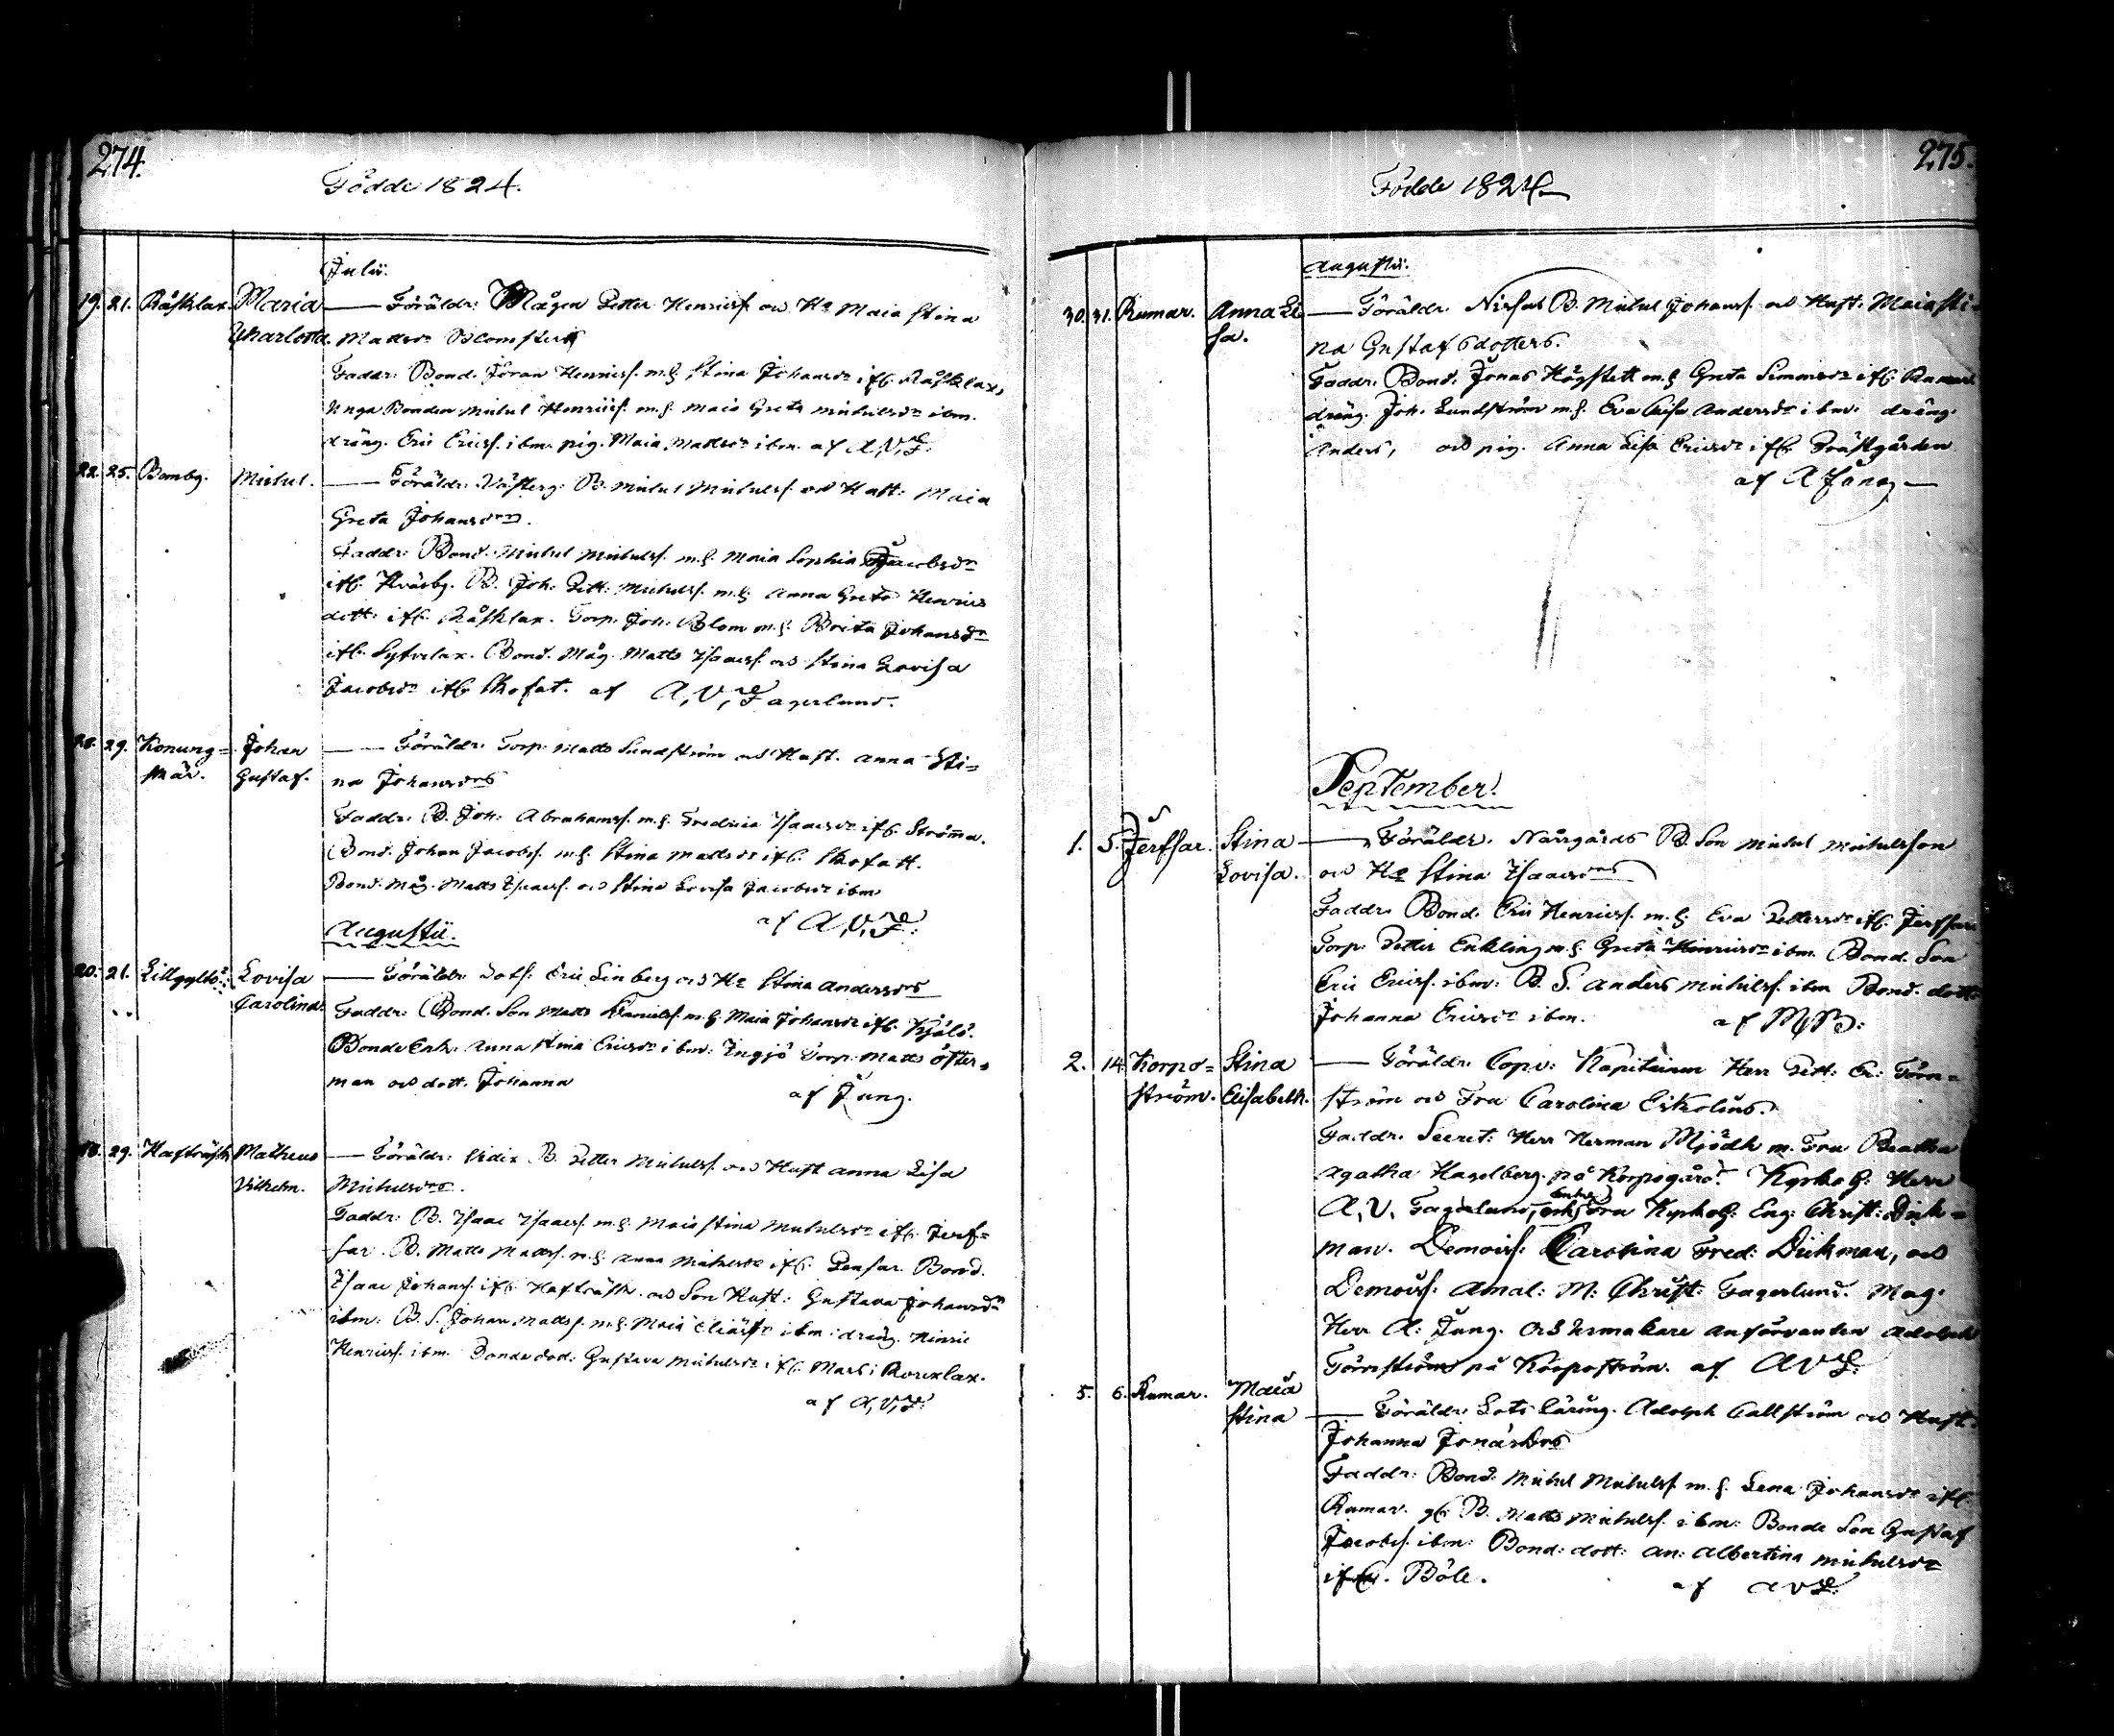 274.
Födde 1824.
Julii.
19. 21. Råsklax. Maria — Föräldr: Mågen Petter Henricss. och H. Maia Stina
Charlotta. Mattsdr Blomster
Faddr: Bond. Jöran Henricss. m.h. Stina Johansdr ifr. Råsklax,
Unga Bonden Michel Henricss. m.h. Maia Greta Michelsdr ibm.
dräng. Eric Ericss. ibm. pig. Maia Mattsdr ibm. af A,V,F.
22. 25. Bomby. Michel. — Föräldr: Västerg: B. Michel Michelss. och Hust: Maia
Greta Johansdr.
Faddr: Bond. Michel Michelss. m.h. Maia Sophia Jacobsdr
ifr. B. Joh: Pett: Michelss. m.h. Anna Greta Henrics
dott. ifr. Råsklax. Torp. Joh: Blom m.h. Brita Johansdr
ifr. Bond. Måg. Matts Isaacss. och Stina Lovisa
Jacobsdr ifr. Skofat. af A,V,Fagerlund.
28. 29. Konung= Johan — Föräldr: Torp. Matts Sundström och Hust. Anna Sti=
skär. Gustaf. na Johansdr
Faddr: B. Joh: Abrahamss. m.h. Fredrica Isaacsdr ifr. Ströma.
Bond. Johan Jacobss. m.h. Stina Mattsdr ifr. Skofatt.
Bond. Måg. Matts Isaacss. och Stina Lovisa Jacobsdr ibm
af A,V,F.
Augustii.
20. 21. Lillgylto: Lovisa — Föräldr: Eric Linberg och H. Stina Andersdr
Carolina. Faddr: Bond. Son Matts Danielss. m.h. Maia Johansdr ifr. Kjälö.
Bonde Enk. Anna Stina Ericsdr ibm: Ingjö Torp. Matts Öster=
man och dott. Johanna af Jung.
18. 29. Hafträsk Matheus — Föräldr: B. Petter Michelss. och Hust Anna Lisa
Vilhelm. Michelsdr.
Faddr: B. Isaac Isaacss. m.h. Maia Stina Michelsdr ifr. Jerf=
sar. B. Matts Mattss. m.h. Anna Michelsdr ifr. Pensar. Bond.
Isaac Johanss. ifr. Hafträsk. och Son Hust: Gustava Johansdr
ibm: B.S. Johan Mattss. m.h. Maia ibm: dräng. Hinric
Henricss. ibm. Bonde dod: Gustava Michelsdr ifr. Mars:
af A,V,F.
275.
Födde 1824.
Augustii.
30. 31. Rumar. Anna Li — Föräldr. B. Michel Johanss. och Hust: Maia Sti=
sa. na Gustafsdotters.
Faddr. Bond. Jonas Högstett m.h. Greta Simonsdr ifr. Rumar
dräng. Joh. Lundström m.h. Eva Lisa Andersdr ibm. dräng.
Anders, och pig. Anna Lisa Ericsdr ifr. Prästgården
af A Jung —
September.
1. 5. Jerfsar. Stina — Föräldr. Norrgårds B. Son Michel Michelsson
Lovisa. och H. Stina Isaacsdr
Faddr: Bond. Eric Henricss. m.h. Eva Pettersdr ifr. Jerfsar
Torp. Petter Enkling m.h. Greta Henricsdr ibm. Bond. Son
Eric Ericss. ibm. B.S. Anders Michelss. ibm Bond. dott.
Johanna Ericsdr ibm. af
2. 14. Korpo= Stina — Föräldr. Kapitainen Herr Pett: Törn=
ström. Elisabeth. ström och Fru Carolina
Faddr. Secret: Herr Herman Mjödh m. Fru Beatha
Agatha Hagelberg. på Korpogård. Kyrkoh: Herr
A,V, Fagerlund, Enke Fru Kyrkoh: Eng: Christ: Dick=
man. Demois: Carolina Fred: Dickman, och
Demois: Amal: M: Christ: Fagerlund. Mag.
Herr A: Jung. och Urmakare Adolph
Törnström på Korpoström. af AVF.
5. 6. Rumar. Maia — Föräldr. Lots Adolph Callström och Hust.
Stina Johanna Jonasdr
Faddr: Bond. Michel Michelss. m.h. Lena Johansdr ifr.
Rumar. B. Matts Michelss. ibm: Bonde Son Gustaf
Jacobss. ibm: Bond: dott: An: Albertina Michelsdr
ifr. Böle. af AVF